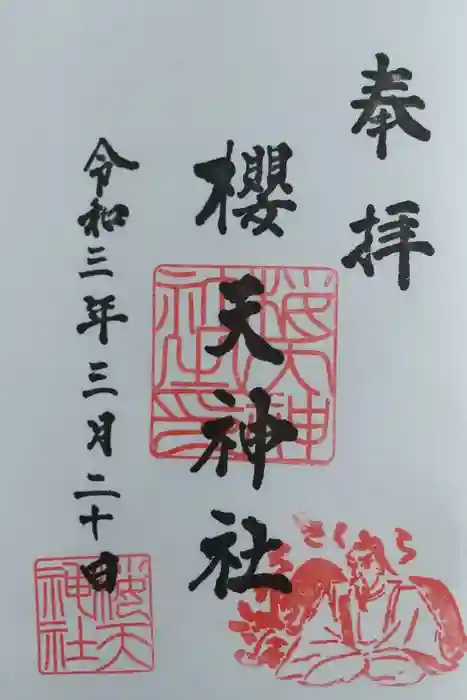 奉拝
櫻天神社
令和三年三月二十日
桜天神社印
桜天神社
さくら